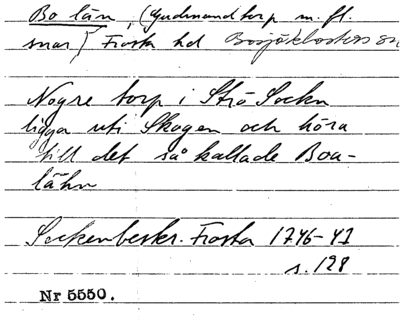 Bo län, (Gudmundtorp m. fl.
snar) Frosta hd Bosjöklosters sn
Nogre torp i Strö Sockn
ligga uti Skogen och höra
till det så kallade Boa-
lähn
Sockenbeskr. Frosta 1746-47
s. 128
Nr 5550.